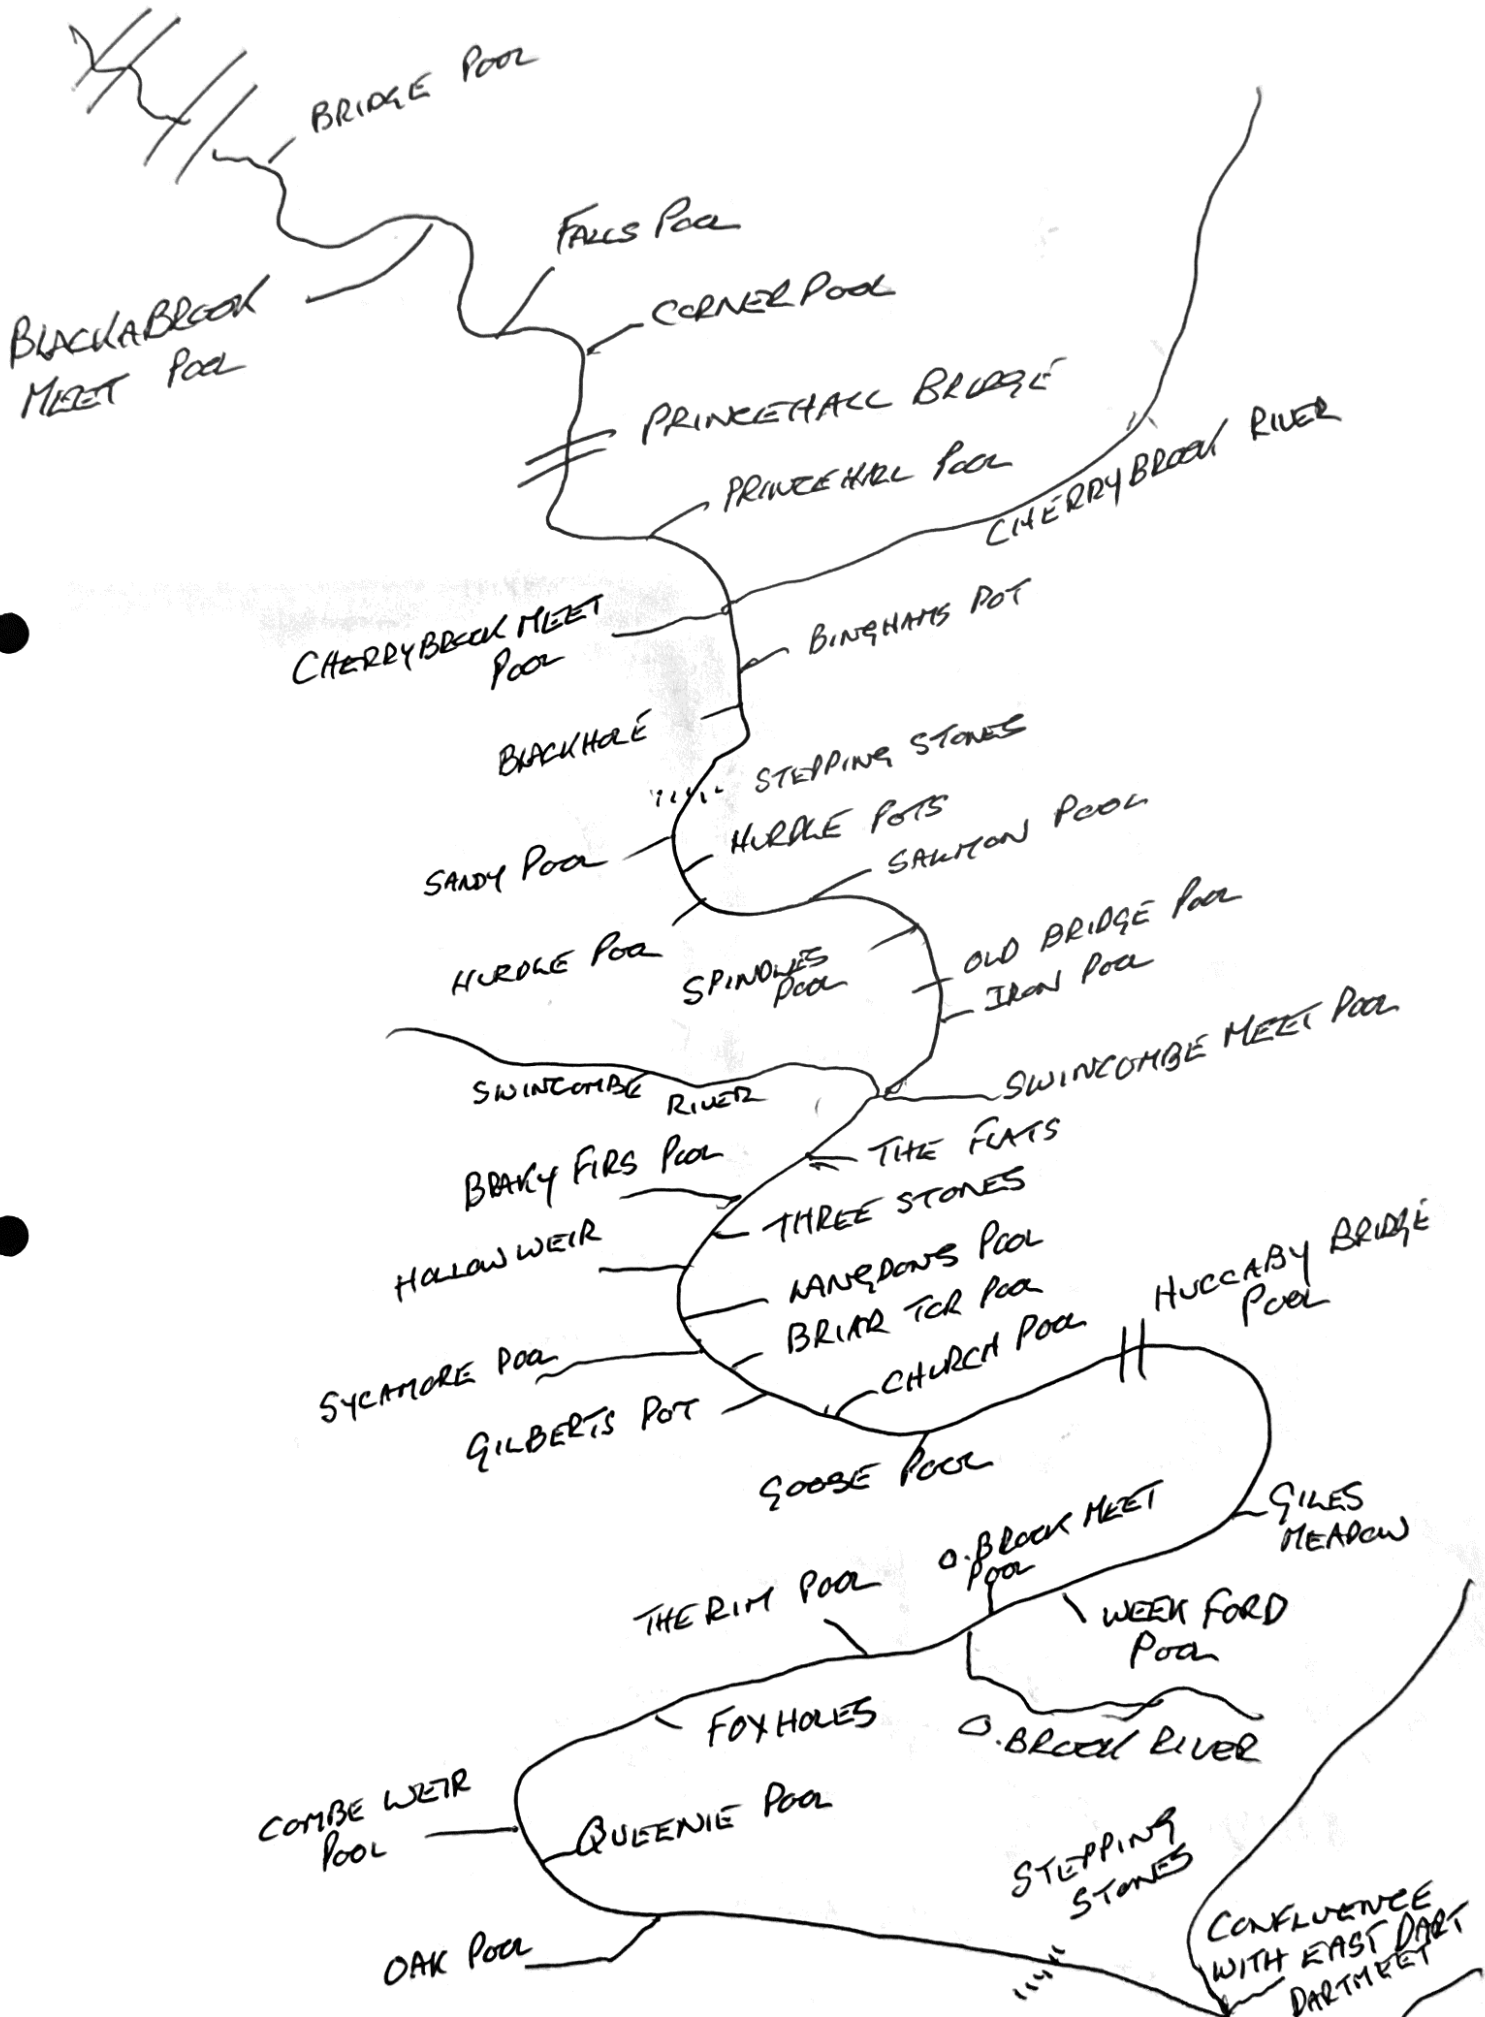 BRIDGE POOL
FALLS POOL
BLACKABROOK
MEET POOL
CORNER POOL
PRINCEHALL BRIDGE
PRINCEHALL POOL
CHERRYBROOK RIVER
CHERRYBROOK MEET
POOL
BINGHAMS POT
BLACKHOLE
STEPPING STONES
HURDLE POTS
SANDY POOL
SALMON POOL
HURDLE POOL
SPINDLES
POOL
OLD BRIDGE POOL
IRON POOL
SWINCOMBE MEET POOL
SWINCOMBE RIVER
THE FLATS
BRAKY FIRS POOL
THREE STONES
HOLLOW WEIR
LANGDONS POOL
BRIAR TOR POOL
HUCCABY BRIDGE
POOL
SYCAMORE POOL
CHURCH POOL
GILBERTS POT
GOOSE POOL
GILES
MEADOW
O.BROOK MEET
POOL
THE RIM POOL
WEEK FORD
POOL
FOXHOLES
O.BROOK RIVER
COMBE WEIR
POOL
QUEENIE POOL
STEPPING
STONES
OAK POOL
CONFLUENCE
WITH EAST DART
DARTMEET